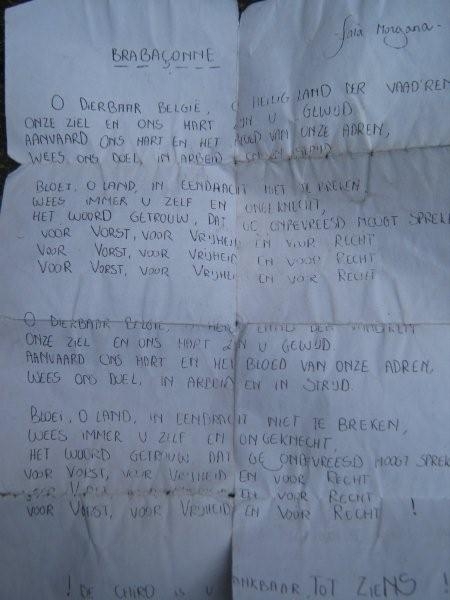 - fata Morgana -
BRABAÇONNE
O DIERBAAR BELGIË, O HEILIG LAND DER VAAD'REN
ONZE ZIEL EN ONS HART ZIJN U GEWIJD
AANVAARD ONS HART EN HET BLOED VAN ONZE ADREN,
WEES ONS DOEL, IN ARBEID EN IN STRIJD.
BLOEI, O LAND, IN EENDRACHT NIET TE BREKEN,
WEES IMMER U ZELF EN ONGEKNECHT,
HET WOORD GETROUW, DAT GE ONBEVREESD MOOGT SPREK
VOOR VORST, VOOR VRIJHEID EN VOOR RECHT
VOOR VORST, VOOR VRIJHEID EN VOOR RECHT
VOOR VORST, VOOR VRIJHEID EN VOOR RECHT
O DIERBAAR BELGIE, O HEILIG LAND DER VAAD'REN
ONZE ZIEL EN ONS HART ZIJN U GEWIJD.
AANVAARD ONS HART EN HET BLOED VAN ONZE ADREN,
WEES ONS DOEL, IN ARBEID EN IN STRIJD.
BLOEI, O LAND, IN EENDRACHT NIET TE BREKEN,
WEES IMMER U ZELF EN ONGEKNECHT,
HET WOORD GETROUW, DAT GE ONBEVREESD MOOGT SPREK
VOOR VORST, VOOR VRIJHEID EN VOOR RECHT
VOOR VORST, VOOR VRIJHEID EN VOOR RECHT
VOOR VORST, VOOR VRIJHEID EN VOOR RECHT !
! DE CHIRO IS U DANKBAAR, TOT ZIENS !